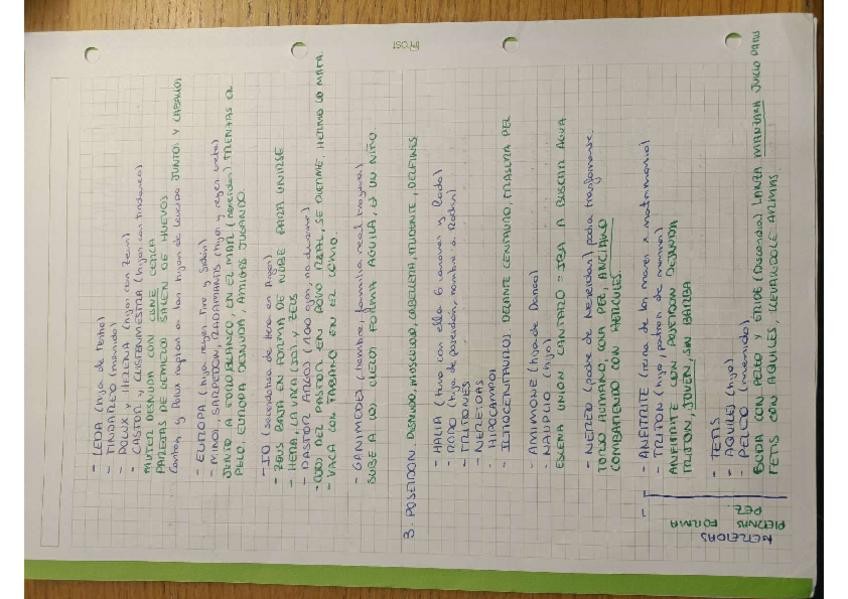 - LEDA (hija de Testio)
- TINDAREO (marido)
- POLUX y HELENA (hijos con Zeus)
- CASTOR y CLISTENMESTRA (hijos con Tindareo)
MUJER DESNUDA CON CISNE CERCA
PAREJAS DE GEMELOS SALEN DE HUEVOS
Castor y Polux raptan a las hijas de Leucipo JUNTOS Y CABALLOS
- EUROPA (hija reyes Tiro y Sidón)
- MINOS, SARPEDON, RADAMANTIS (hijos y reyes creta)
JUNTO A TORO BLANCO, EN EL MAR (nereidas) TRENZAS EL
PELO, EUROPA DESNUDA, AMIGAS JUGANDO.
- IO (sacerdotisa de Hera en Argos)
- ZEUS BAJA EN FORMA DE NUBE PARA UNIRSE
- HERA, LA VACA (IO) Y ZEUS
- PASTOR ARGOS (100 ojos, no duerme)
- OJOS DEL PASTOR EN PAVO REAL, SE DUERME, HERMES LO MATA.
- VACA CON TABANO EN EL LOMO.
- GANIMEDES (hombre, familia real troyana)
SUBE A LOS CIELOS FORMA AGUILA, ES UN NIÑO
3. POSEIDON DESNUDO, MUSCULOSO, CABELLERA, TRIDENTE, DELFINES
- HALIA (tuvo con ella 6 varones y Rodo)
- RODO (hija de poseidón, nombre a Rodas)
- TRITONES
- NEREIDAS
- HIPOCAMPOS
- ICTIOCENTAUROS DELANTE CENTAURO, TRASERA PEZ
- AMIMONE (hija de Danao)
- NAUPLIO (hijo)
ESCENA UNION CANTARO = IBA A BUSCAR AGUA
- NEREO (padre de Nereidas) podía transformarse.
TORSO HUMANO, COLA PEZ, ANCIANO
COMBATIENDO CON HERCULES.
NEREIDAS
PIERNAS FORMA
PEZ
- ANFITRITE (reina de los mares x matrimonio)
- TRITON (hijo, patrón de marinos)
ANFITRITE CON POSEIDON DESNUDA
TRITON, JOVEN, SIN BARBA
- TETIS
- AQUILES (hijo)
- PELEO (marido)
BODA CON PELEO Y ERIDE (Discordia) LANZA MANZANA JUICIO PARIS
TETIS CON AQUILES, LLEVANDOLE ARMAS.